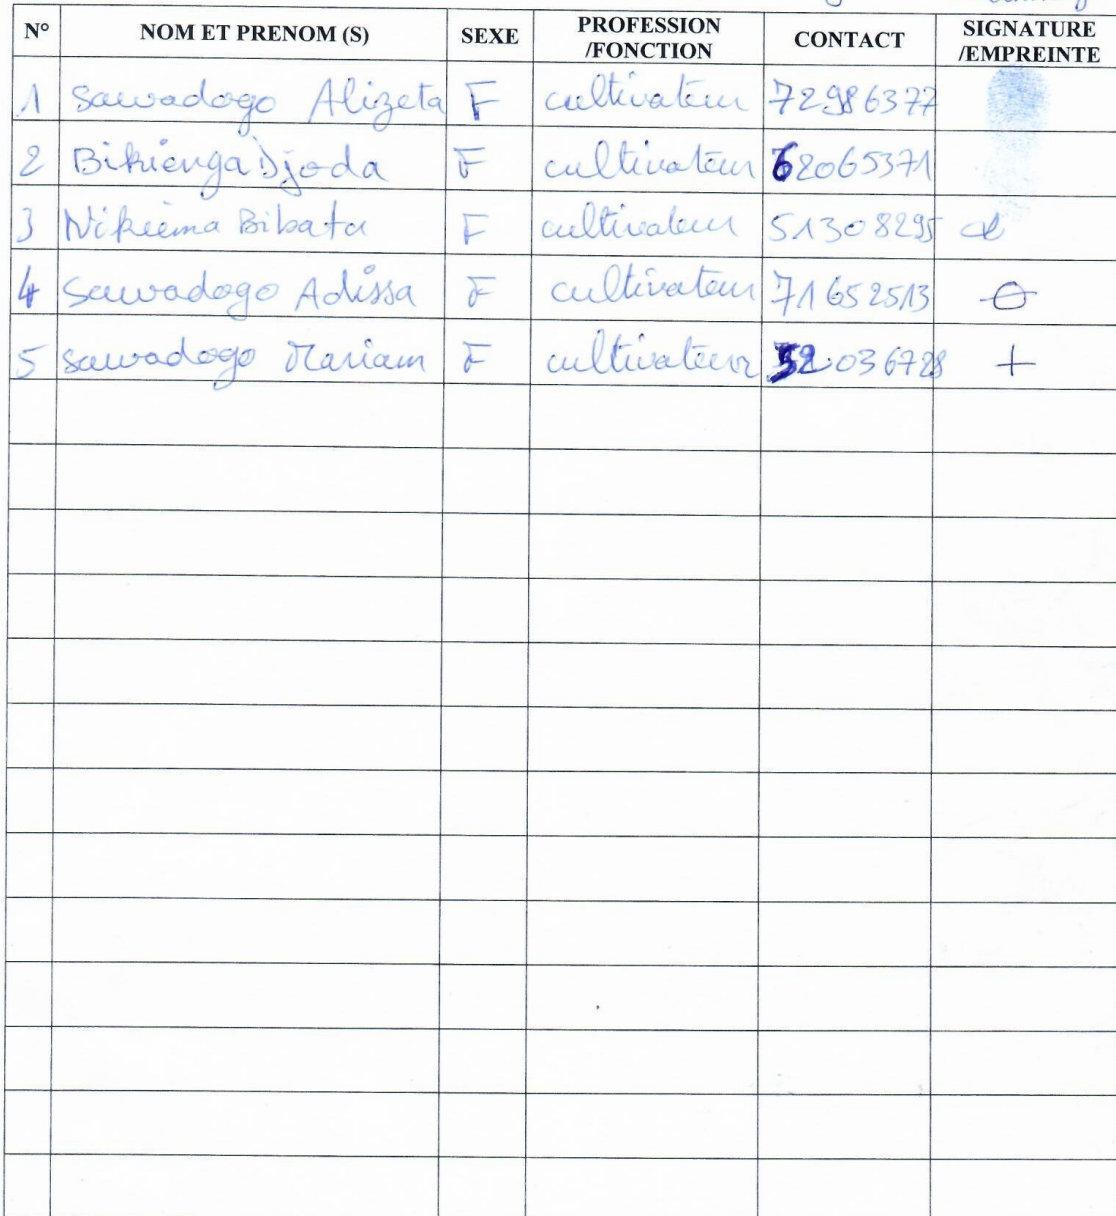 N° NOM ET PRENOM (S) SEXE PROFESSION /FONCTION CONTACT SIGNATURE /EMPREINTE
1 Sawadogo Alizeta F cultivateur 72986377
2 Bikienga Djoda F cultivateur 62065371
3 Nikiema Bibata F cultivateur 51308295
4 Sawadogo Adissa F cultivateur 71652513
5 Sawadogo Mariam F cultivateur 52036728 +